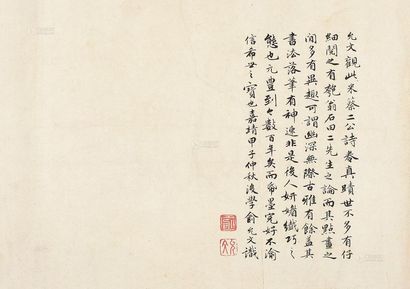 允文觀此米蔡二公詩卷真蹟世不多有仔
細閱之有匏翁石田二先生之論而其點畫之
間多有異趣可謂幽深無際古雅有餘蓋其
書法落筆有神迥非是後人妍媚纖巧之
態也元豐到今數百年矣而希墨完好不渝
信希世之寶也嘉靖甲子仲秋後學俞允文識